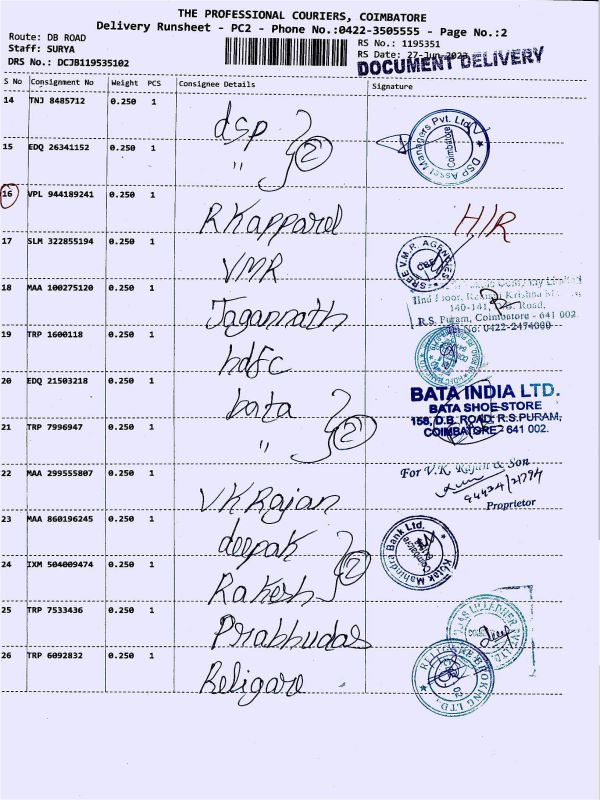 THE PROFESSIONAL COURIERS, COIMBATORE
Delivery Runsheet - PC2 - Phone No.:0422-3505555 - Page No.:2
Route: DB ROAD
Staff: SURYA
DRS No.: DCJB119535102
RS No.: 1195351
RS Date: 27-Jun-2023
DOCUMENT DELIVERY
S No Consignment No Weight PCS Consignee Details Signature
14 TNJ 8485712 0.250 1 dsp
15 EDQ 26341152 0.250 1 " 2
DSP Asset Managers Pvt. Ltd. Coimbatore
16 VPL 944189241 0.250 1 RKapparel H/R
17 SLM 322855194 0.250 1 VMR
SREE V.M.R. AGENCIES CBE
18 MAA 100275120 0.250 1 Jagannath
140-141, D.B. Road,
R.S. Puram, Coimbatore - 641 002
Tel No: 0422-2474000
19 TRP 1600118 0.250 1 hdfc
20 EDQ 21503218 0.250 1 bata
21 TRP 7996947 0.250 1 " 2
BATA INDIA LTD.
BATA SHOE STORE
158, D.B. ROAD, R.S.PURAM,
COIMBATORE - 641 002.
22 MAA 299555807 0.250 1 VKRajan
For V.K. Rajan & Son
94424/21774
Proprietor
23 MAA 860196245 0.250 1 deepak
24 IXM 504009474 0.250 1 Rakesh 2
Kotak Mahindra Bank Ltd.
25 TRP 7533436 0.250 1 Prabhudas
26 TRP 6092832 0.250 1 Religare
RELIGARE BROKING LTD.